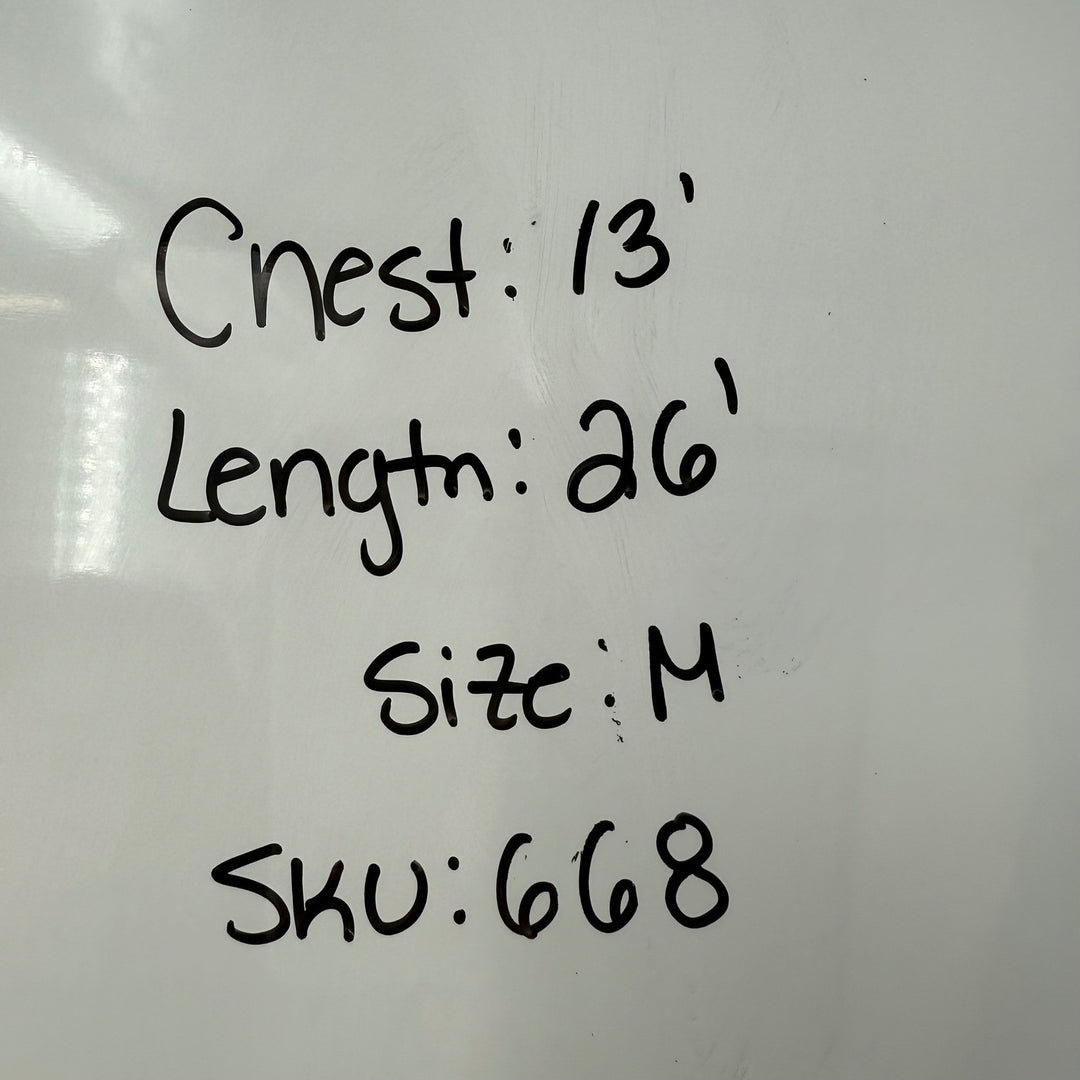 Chest: 13'
Length: 26'
Size: M
SKU: 668